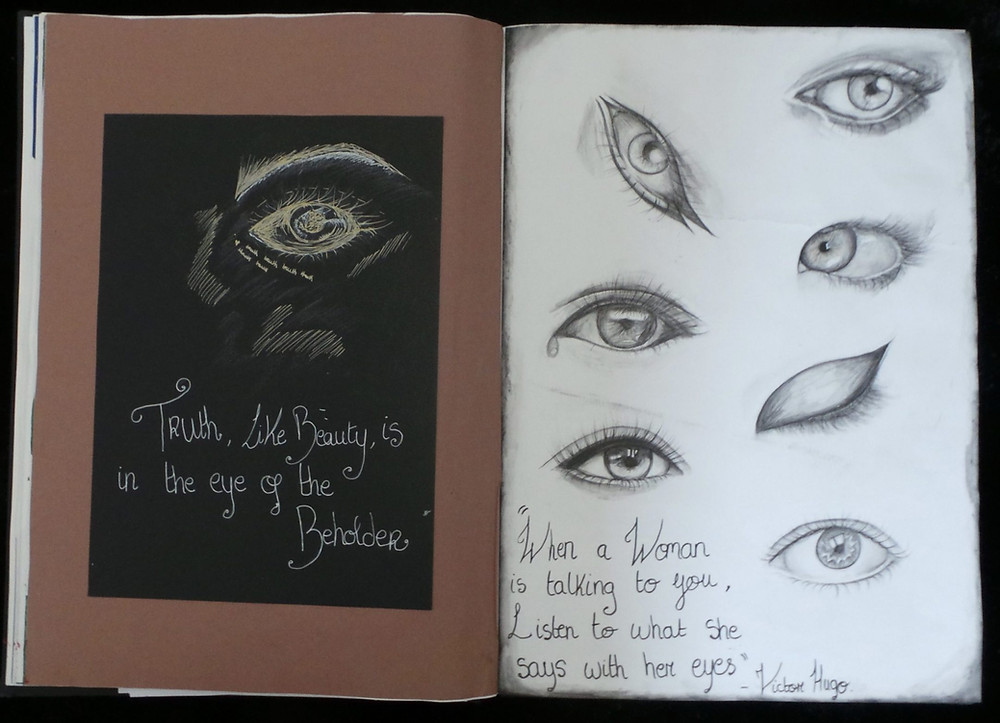 Truth, Like Beauty, is
in the eye of the
Beholder"
"When a Woman
is talking to you,
Listen to what she
says with her eyes"
- Victor Hugo.